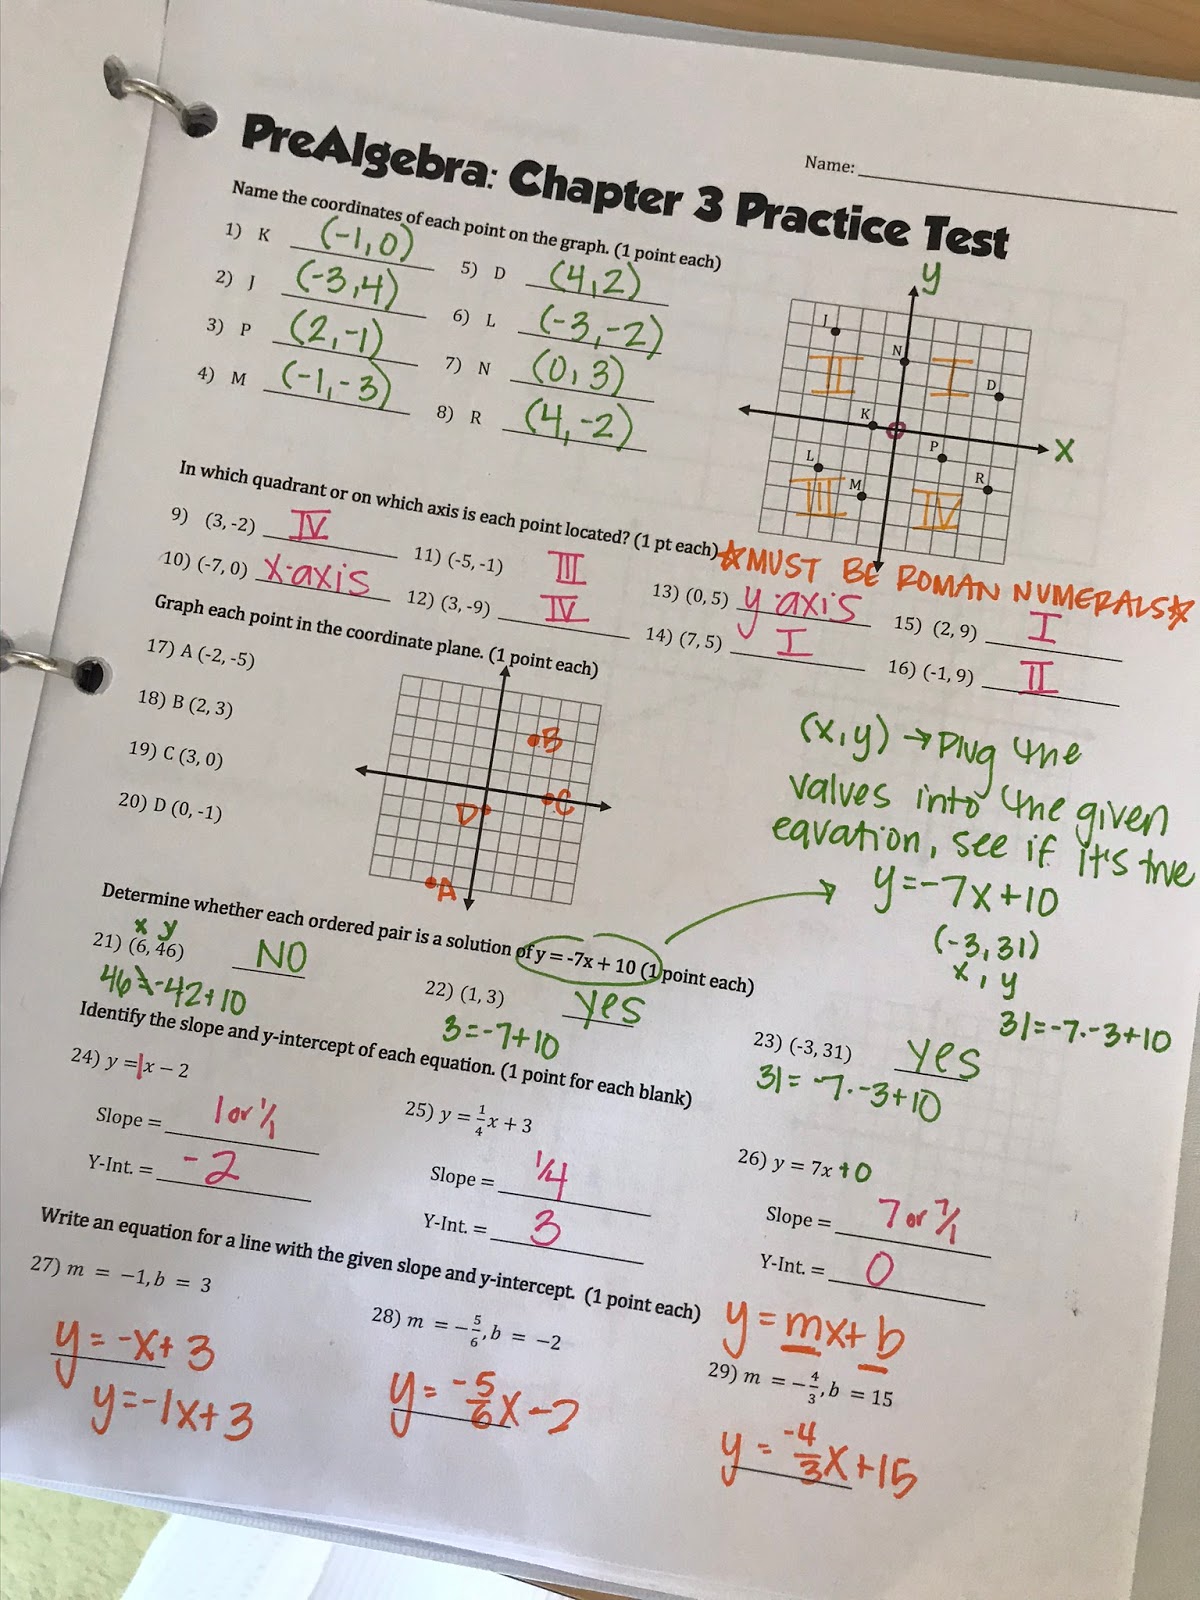 Name:
PreAlgebra: Chapter 3 Practice Test
Name the coordinates of each point on the graph. (1 point each)
1) K (-1,0)
2) J (-3,4)
3) P (2,-1)
4) M (-1,-3)
5) D (4,2)
6) L (-3,-2)
7) N (0,3)
8) R (4,-2)
y
J
N
II
I
D
K
x
P
L
R
M
III
IV
In which quadrant or on which axis is each point located? (1 pt each)
☆MUST BE ROMAN NUMERALS☆
9) (3, -2) IV
10) (-7, 0) x-axis
11) (-5, -1) III
12) (3, -9) IV
13) (0, 5) y-axis
14) (7, 5) I
15) (2, 9) I
16) (-1, 9) II
Graph each point in the coordinate plane. (1 point each)
17) A (-2, -5)
18) B (2, 3)
19) C (3, 0)
20) D (0, -1)
B
C
D
A
(x,y) → Plug the
values into the given
equation, see if it's true
y=-7x+10
(-3,31)
x, y
31=-7·-3+10
Determine whether each ordered pair is a solution of y = -7x + 10 (1 point each)
x y
21) (6, 46) NO
46≠-42+10
22) (1, 3) yes
3=-7+10
23) (-3, 31) yes
31= -7·-3+10
Identify the slope and y-intercept of each equation. (1 point for each blank)
24) y = 1x − 2
Slope = 1 or 1/1
Y-Int. = -2
25) y = 1/4 x + 3
Slope = 1/4
Y-Int. = 3
26) y = 7x +0
Slope = 7 or 7/1
Y-Int. = 0
Write an equation for a line with the given slope and y-intercept. (1 point each)
y=mx+b
27) m = −1, b = 3
y = -x+3
y=-1x+3
28) m = −5/6, b = −2
y = -5/6x-2
29) m = −4/3, b = 15
y = -4/3x+15